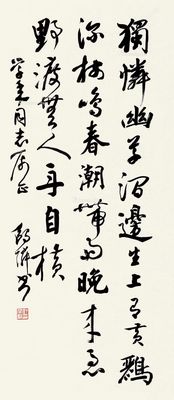 獨憐幽草澗邊生上有黃鸝
深樹鳴春潮帶雨晚來急
野渡無人舟自橫
同志属正